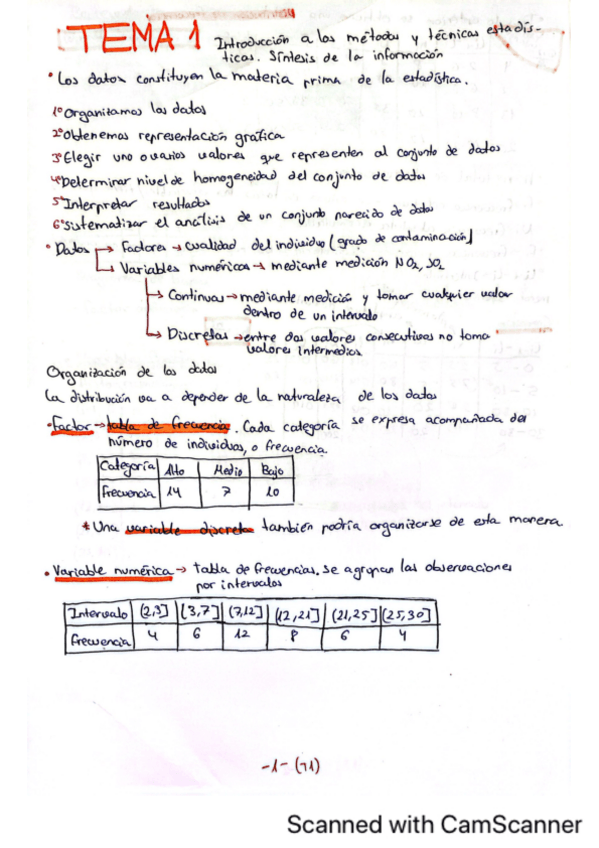 TEMA 1 Introducción a los métodos y técnicas estadís-
ticas. Síntesis de la información
• Los datos constituyen la materia prima de la estadística.
1º Organizamos los datos
2º Obtenemos representación gráfica
3º Elegir uno o varios valores que representen al conjunto de datos
4º Determinar nivel de homogeneidad del conjunto de datos
5º Interpretar resultados
6º Sistematizar el análisis de un conjunto parecido de datos
• Datos → Factores → cualidad del individuo (grado de contaminación)
→ Variables numéricas → mediante medición NO2, SO2
→ Continuas → mediante medición y tomar cualquier valor
dentro de un intervalo
→ Discretas → entre dos valores consecutivos no toma
valores intermedios
Organización de los datos
La distribución va a depender de la naturaleza de los datos
• Factor → tabla de frecuencia. Cada categoría se expresa acompañada del
número de individuos, o frecuencia.
Categoría Alto Medio Bajo
Frecuencia 14 7 10
* Una variable discreta también podría organizarse de esta manera
• Variable numérica → tabla de frecuencias. Se agrupan las observaciones
por intervalos
Intervalo (2,3] (3,7] (7,12] (12,21] (21,25] (25,30]
Frecuencia 4 6 12 8 6 4
-1- (T1)
Scanned with CamScanner